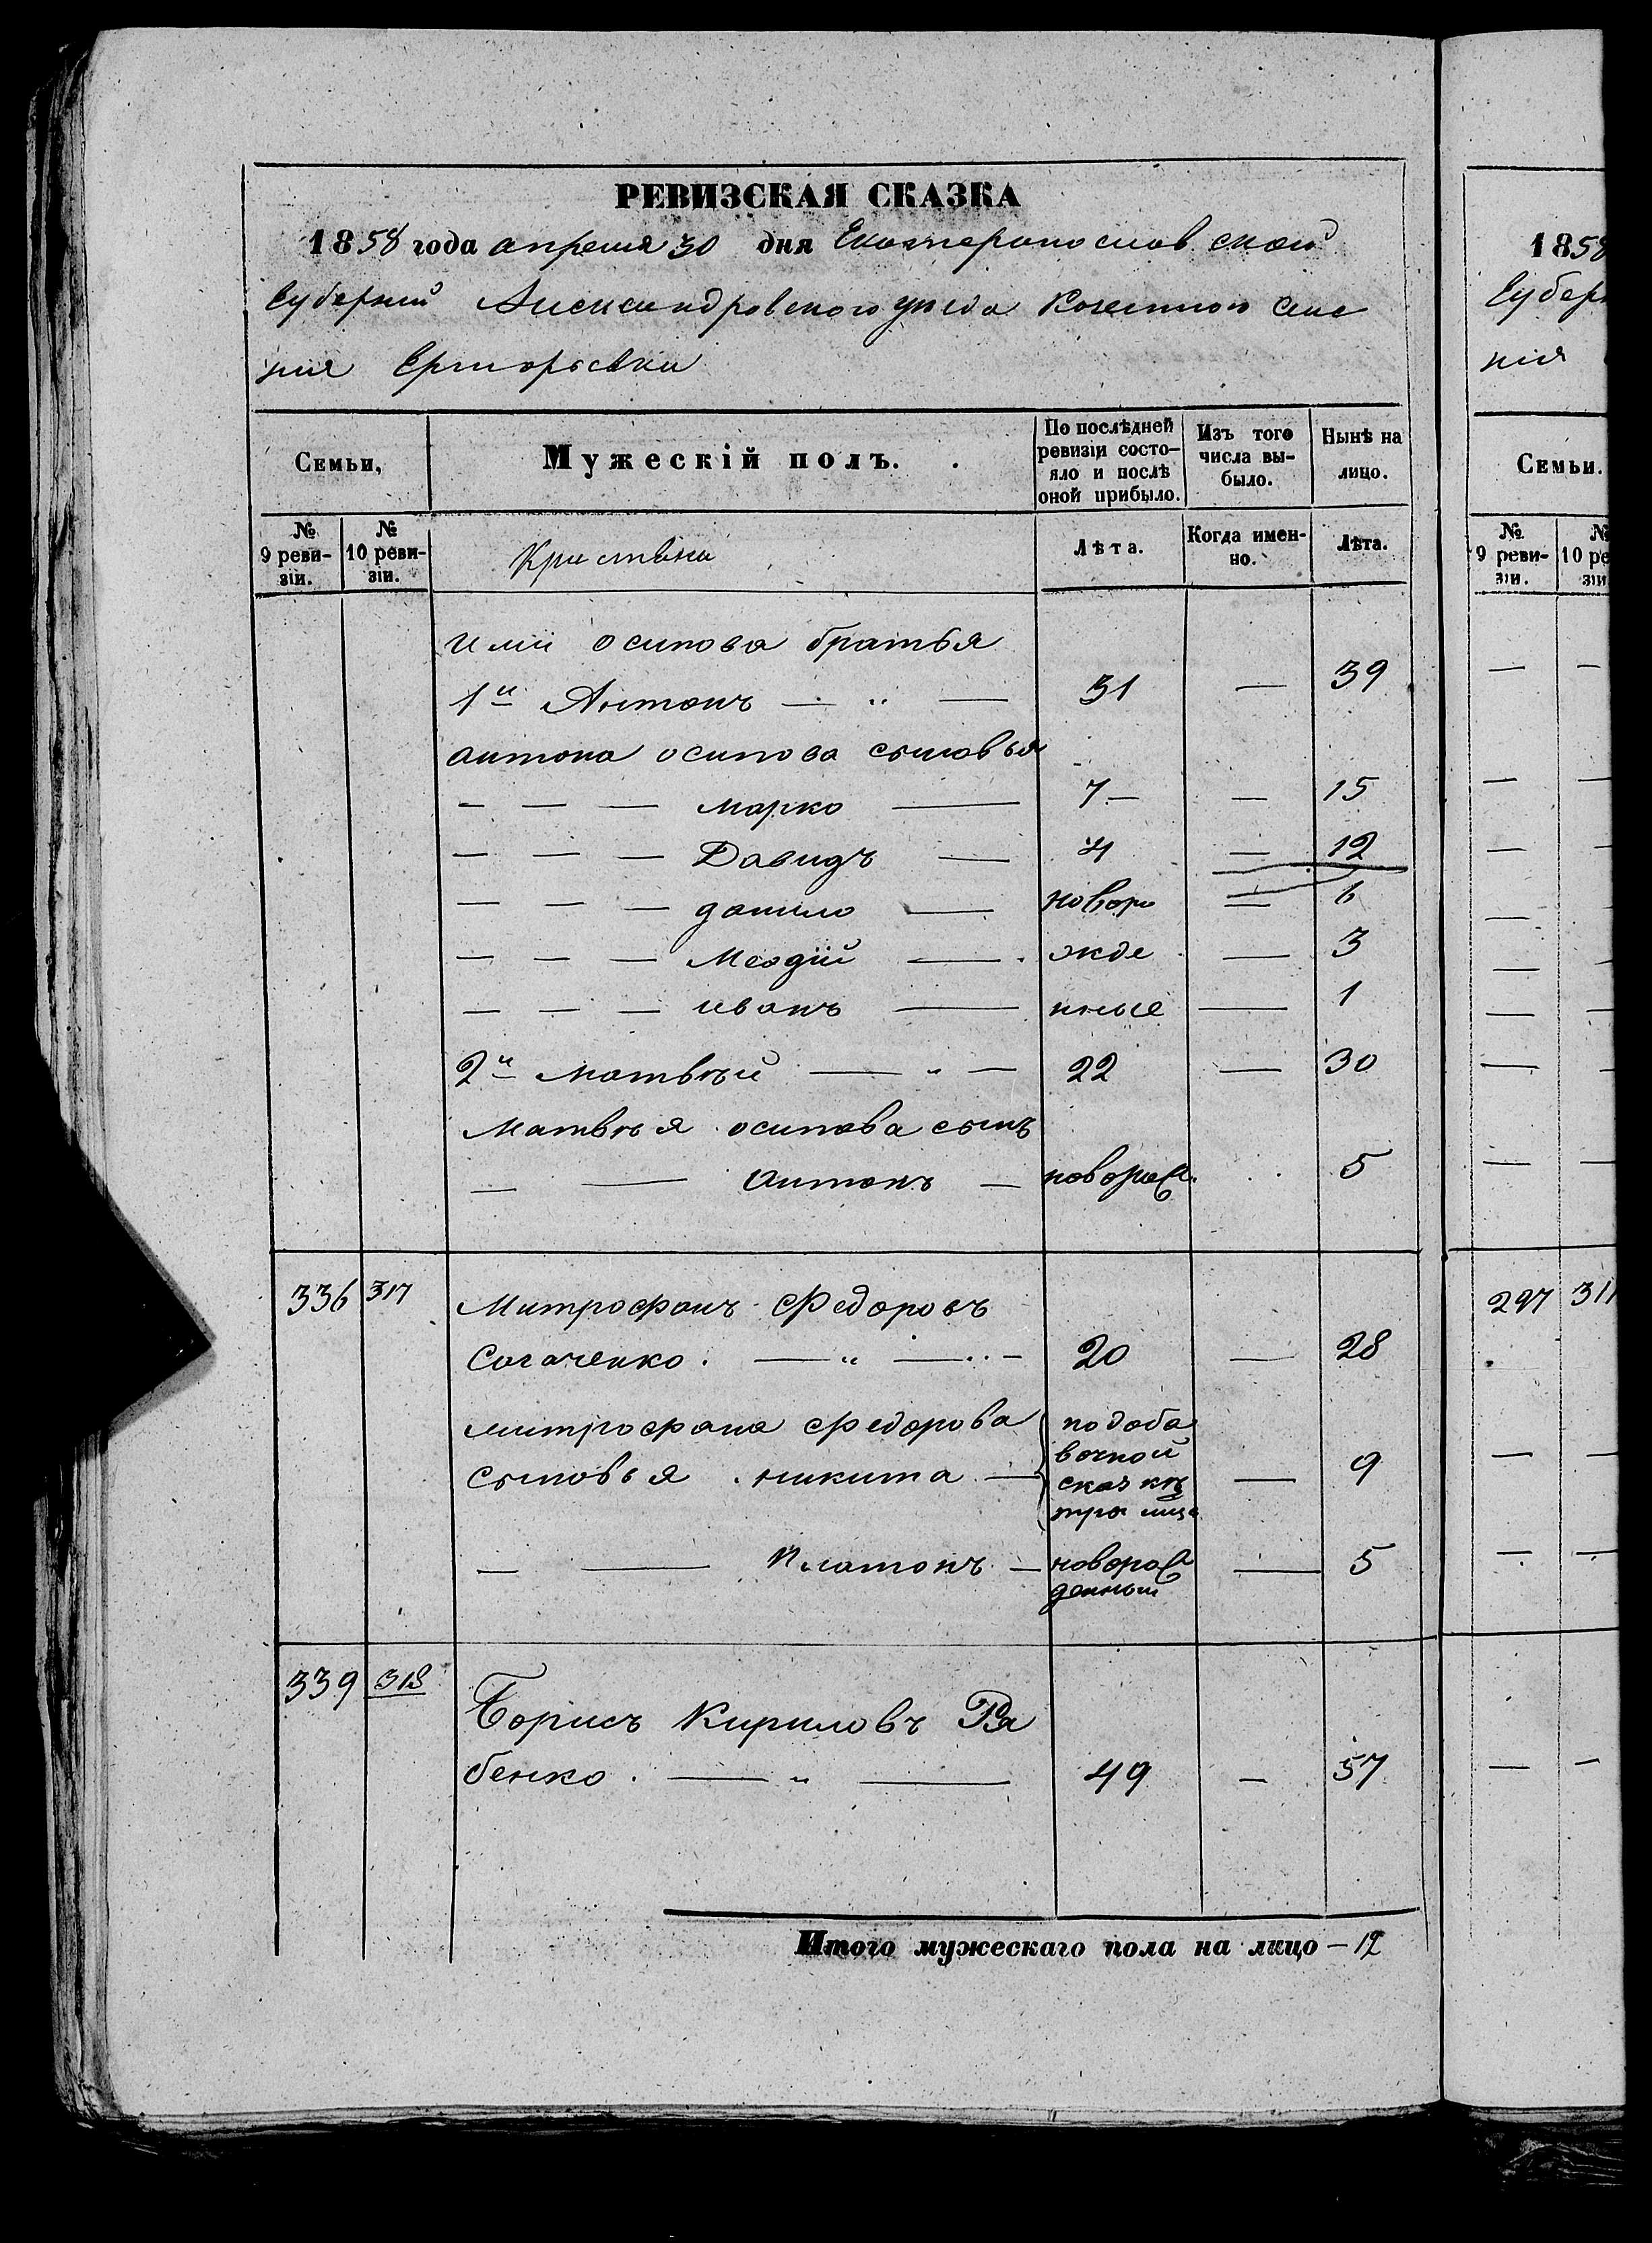 РЕВИЗСКАЯ СКАЗКА
1858 года апреля 30 дня Екатеринославской
Губерніи Александровскаго уезда Казеннои селе
нія Григорьевки
Семьи,
Мужескій полъ.
По послѣдней ревизіи состояло и послѣ оной прибыло.
Изъ того числа выбыло.
Нынѣ на лицо.
№ 9 ревизіи.
№ 10 ревизіи.
Лѣта.
Когда именно.
Лѣта.
осипова братья
1й Антонъ — " — 31 — 39
антона осипова сыновья
— — — марко — 7 — — 15
— — — Давидъ — 4 — 12
— — — данило — новоро — 6
— — — — жде — 3
— — — иванъ — нные — 1
2й матвѣй — " — 22 — 30
матвѣя осипова сынъ
— — антонъ — новорож. 5
336 317 Митрофанъ Федоровъ
Согаченко. — " — 20 — 28
митрофана Федорова
подоба
вочной
сыновья никита — сказкѣ — 9
— — Платонъ — новорож — 5
денный
339 318
Борисъ Кириловъ Ря
бенко. — " — 49 — 57
Итого мужескаго пола на лицо — 12
1858
Губерн
нія
Семьи.
№ 9 ревизіи.
297 311